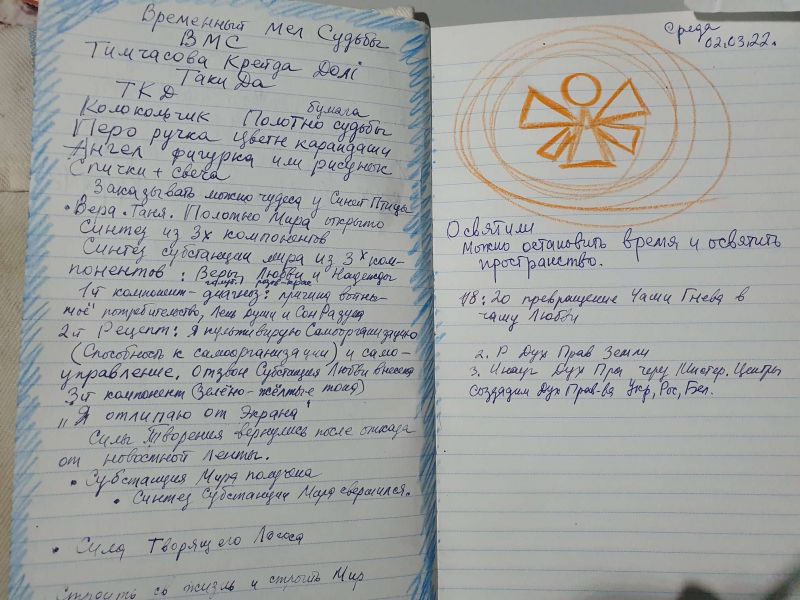 Временный мел Судьбы
ВМС
Тимчасова Крейда Долі
Таки Да
ТКД
бумага
Колокольчик Полотно судьбы
Перо ручка цветн карандаши
Ангел фигурка или рисунок
Спички + свеча
Заказывать можно чудеса у Синей Птицы
• Вера. Таня. Полотно Мира открыто
Синтез из 3х компонентов
Синтез субстанции мира из 3х ком-
понентов: Веры, Любви и Надежды
1й компонент - диагноз: причина войны -
моё потребительство, Лень души и Сон Разума
2й Рецепт: Я культивирую Самоорганизацию
(Способность к самоорганизации) и само-
управление. Отзвон Субстанция Любви внесена
3й компонент (Зелёно-жёлтые тона)
"Я отлипаю от Экрана"
Силы Творения вернулись после отказа
от новостной Ленты.
• Субстанция Мира получена
• Синтез Субстанции Мира свершился.
• Сила Творящего Логоса
Строить со жизнь и строить Мир
Среда
02.03.22.
Освятили
Можно остановить время и освятить
пространство.
18:20 превращение Чаши Гнева в
чашу Любви
2. Р Дух Прав Земли
3. Инауг Дух Пра через Мистер. Центры
Создадим Дух Прав-ва Укр, Рос, Бел.